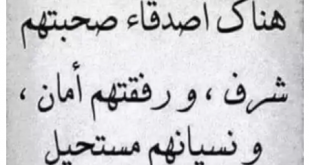 هناك اصدقاء صحبتهم
شرف ، و رفقتهم أمان ،
و نسيانهم مستحيل